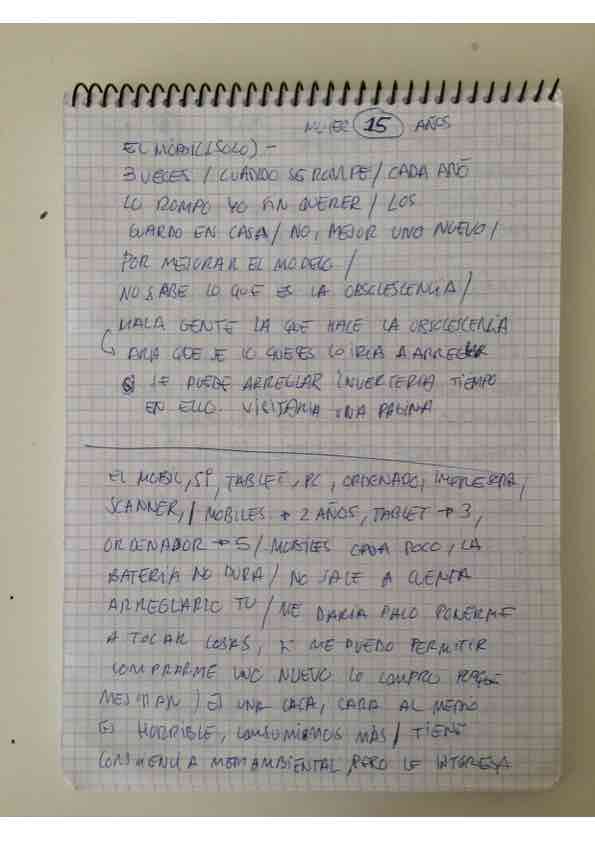 MUJER 15 AÑOS
EL MOBIL (SOLO) -
3 VECES / CUANDO SE ROMPE / CADA AÑO
LO ROMPO YO SIN QUERER / LOS
GUARDO EN CASA / NO, MEJOR UNO NUEVO /
POR MEJORAR EL MODELO /
NO SABE LO QUE ES LA OBSOLESCENCIA /
MALA GENTE LA QUE HACE LA OBSOLESCENCIA
QUE SE LO QUE ES LO IRIA A ARREGLAR
SI SE PUEDE ARREGLAR INVERTERIA TIEMPO
EN ELLO. VISITARIA UNA PAGINA
EL MOBIL, TABLET, PC, ORDENADO, IMPRESORA,
SCANNER, / MOBILES → 2 AÑOS, TABLET → 3,
ORDENADOR → 5 / MOBILES CADA POCO, LA
BATERIA NO DURA / NO SALE A CUENTA
ARREGLARLO TU / ME DARIA PALO PONERME
A TOCAR COSAS, ME PUEDO PERMITIR
COMPRARME UNO NUEVO LO COMPRO
MEJORAN) ES UNA CACA, CARA AL MEDIO
ES HORRIBLE, CONSUMIMOS MÁS / TIENE
MEDIAMBIENTAL, PERO LE INTERESA